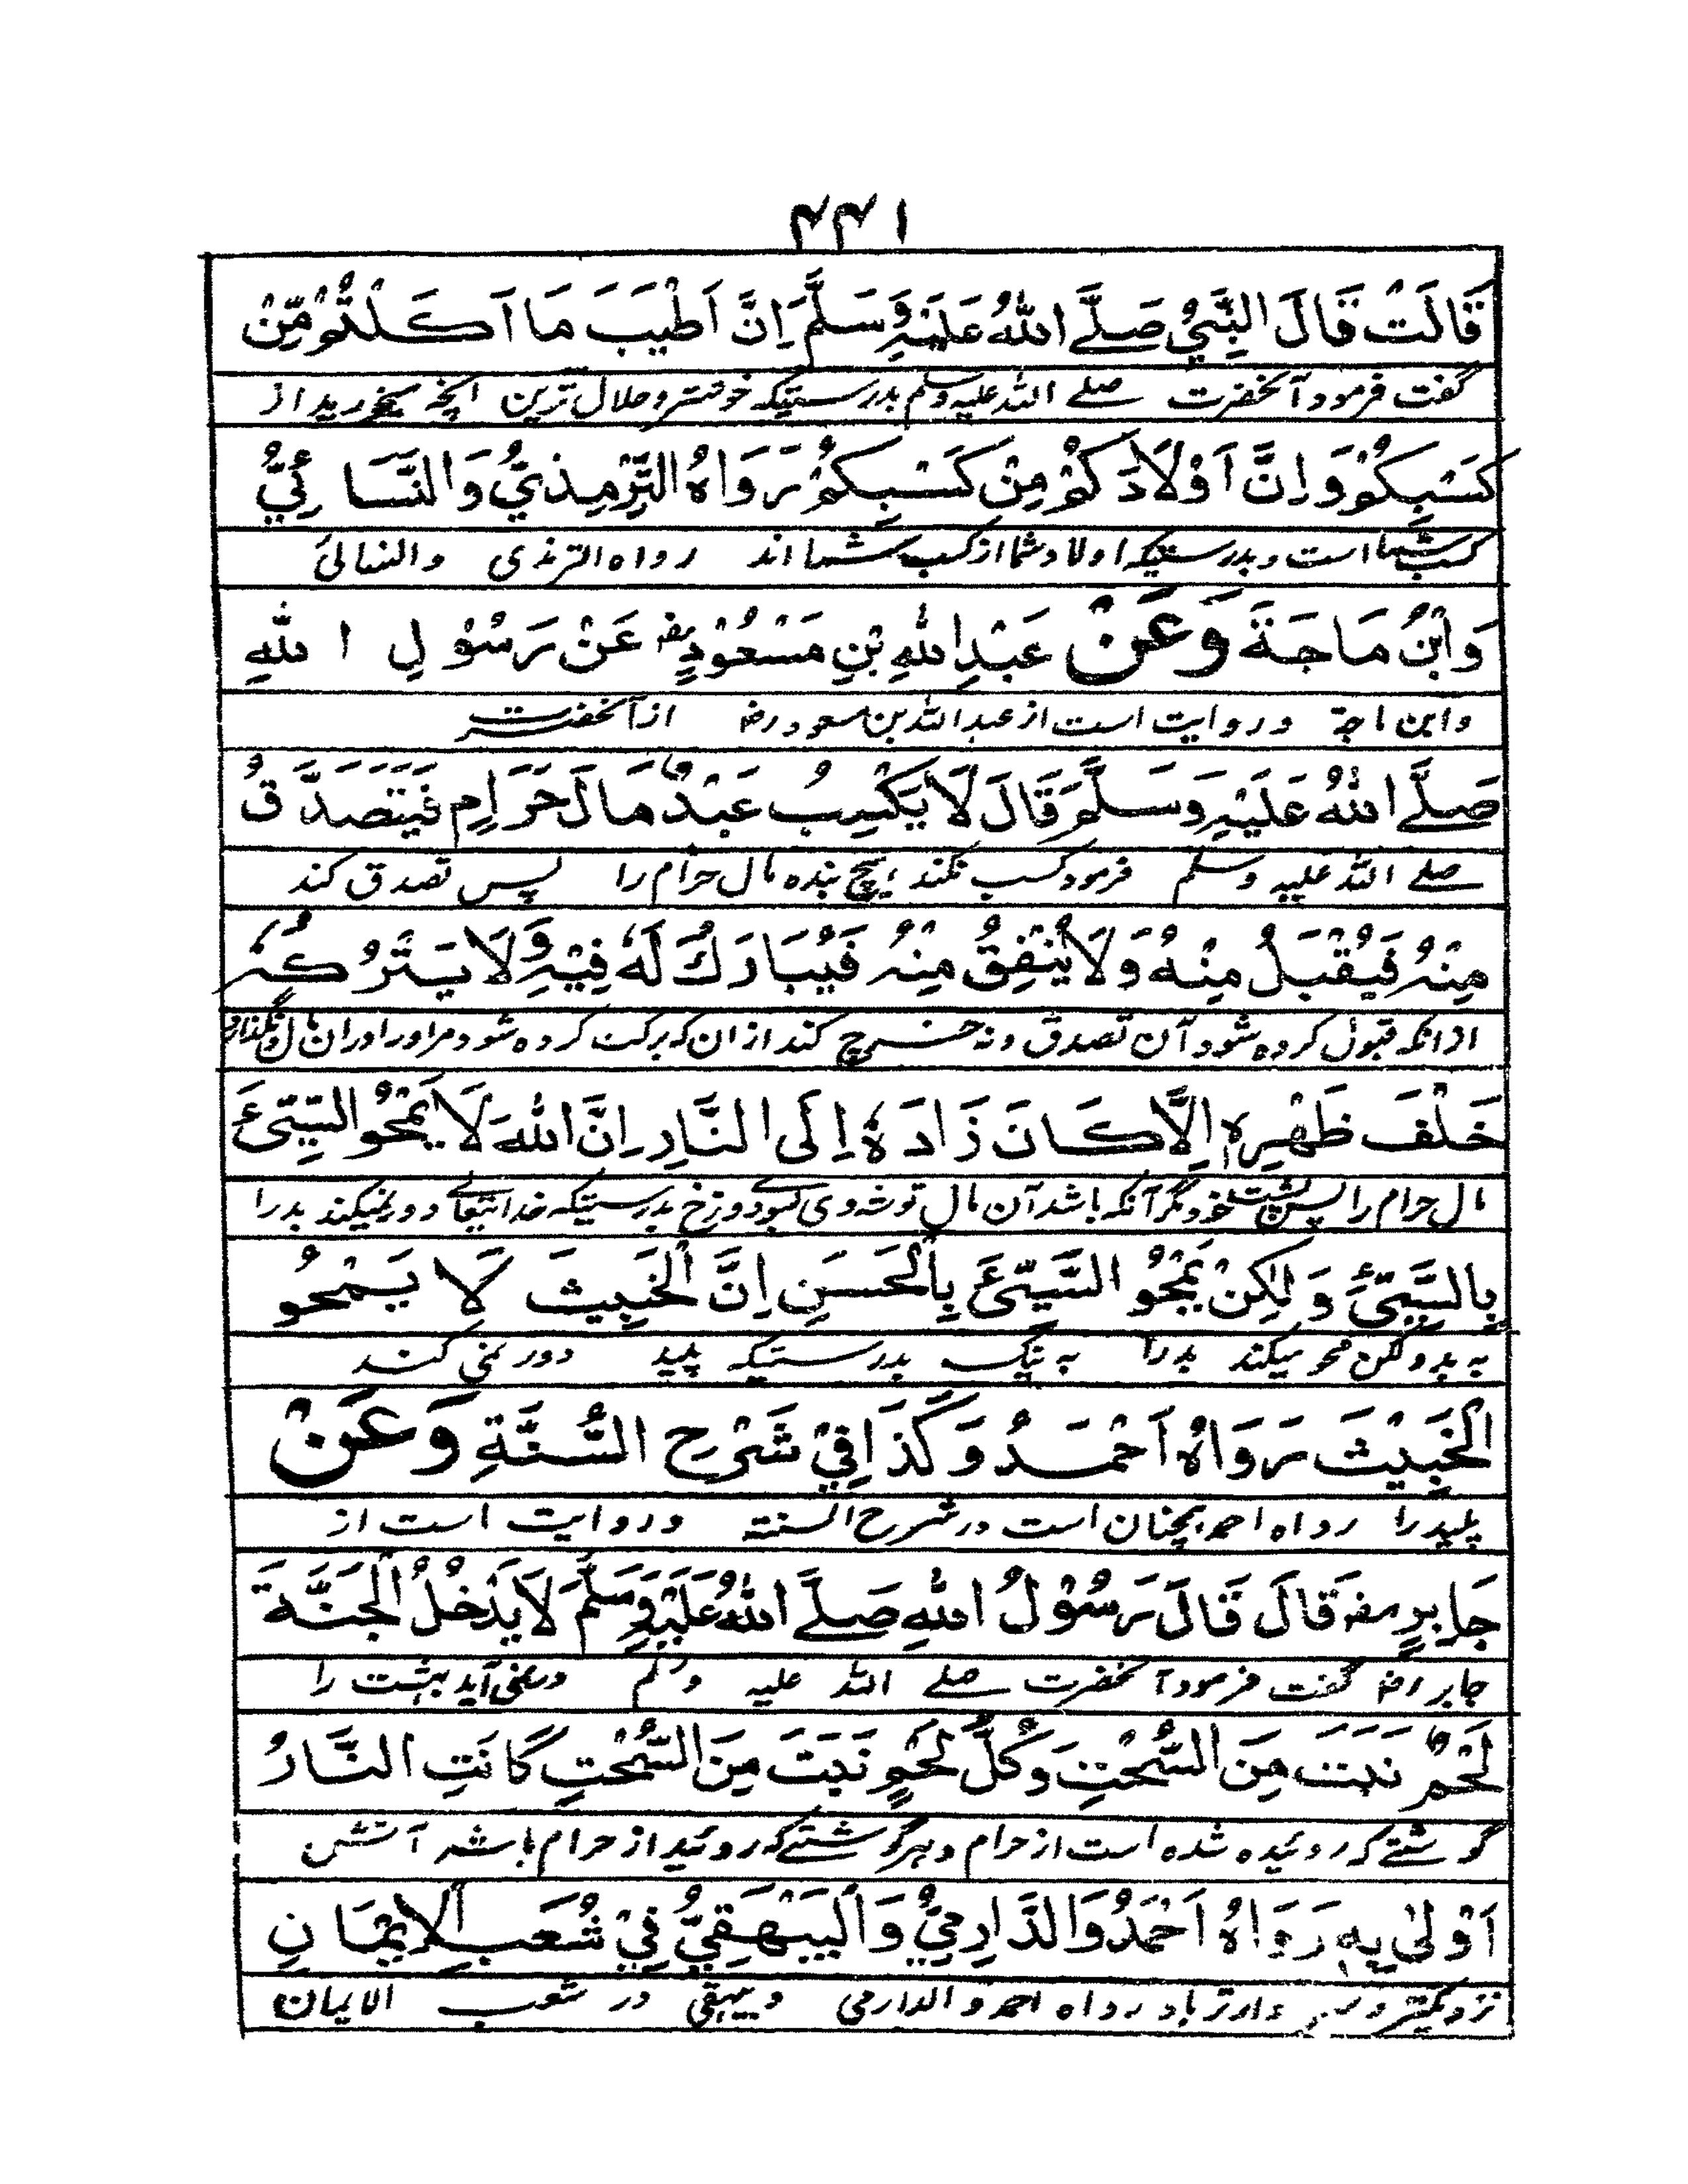 ۴۴۱
قَالَتْ قَالَ النَّبِيُّ صَلَّے اللّٰهُ عَلَيْهِ وَسَلَّمَ اِنَّ اَطْيَبَ مَا اَكَلْتُمْ مِّنْ
گفت فرمود آنحضرت صلے اللہ علیہ وسلم بدرستیکہ خوشتر و حلال ترین انچہ بخورید از
كَسْبِكُمْ وَاِنَّ اَوْلَادَكُمْ مِنْ كَسْبِكُمْ رَوَاهُ التِّرْمِذِيُّ وَالنَّسَائِيُّ
کسب شما است و بدرستیکہ اولاد شما از کسب شما اند رواه الترمذی والنسائی
وَابْنُ مَاجَةَ وَعَنْ عَبْدِ اللّٰهِ بْنِ مَسْعُوْدٍ رضہ عَنْ رَسُوْلِ اللّٰهِ
وابن ماجۃ و روایت است از عبد اللہ بن مسعود رضہ از آنحضرت
صَلَّے اللّٰهُ عَلَيْهِ وَسَلَّمَ قَالَ لَا يَكْسِبُ عَبْدٌ مَالَ حَرَامٍ فَيَتَصَدَّقُ
صلے اللہ علیہ وسلم فرمود کسب نکند ہیچ بندہ مال حرام را پس تصدق کند
مِنْهُ فَيُقْبَلُ مِنْهُ وَلَا يُنْفِقُ مِنْهُ فَيُبَارَكُ لَهٗ فِيْهِ وَلَا يَتْرُكُهٗ
ازانکہ قبول کردہ شود آن تصدق و نہ خرچ کند ازان کہ برکت کردہ شود مر او را دران مال و نگذارد
خَلْفَ ظَهْرِهٖ اِلَّا كَانَ زَادَهٗ اِلَى النَّارِ اِنَّ اللّٰهَ لَا يَمْحُو السَّيِّئَ
مال حرام را پس پشت خود مگر آنکہ باشد آن مال توشہ وی بسوے دوزخ بدرستیکہ خدایتعالے دور نمیکند بد را
بِالسَّيِّئِ وَلٰكِنْ يَمْحُو السَّيِّئَ بِالْحَسَنِ اِنَّ الْخَبِيثَ لَا يَمْحُو
بہ بد و لکن محو میکند بد را بہ نیک بدرستیکہ پلید دور نمی کند
الْخَبِيْثَ رَوَاهُ اَحْمَدُ وَكَذَا فِيْ شَرْحِ السُّنَّةِ وَعَنْ
پلید را رواه احمد ہمچنان است در شرح السنتہ و روایت است از
جَابِرٍ رضہ قَالَ قَالَ رَسُوْلُ اللّٰهِ صَلَّے اللّٰهُ عَلَيْهِ وَسَلَّمَ لَا يَدْخُلُ الْجَنَّةَ
جابر رضہ گفت فرمود آنحضرت صلے اللہ علیہ وسلم در نمی آید بہشت را
لَحْمٌ نَبَتَ مِنَ السُّحْتِ وَكُلُّ لَحْمٍ نَبَتَ مِنَ السُّحْتِ كَانَتِ النَّارُ
گوشتے کہ روئیدہ شدہ است از حرام و ہر گوشتے کہ روئید از حرام باشد آتش
اَوْلٰى بِهٖ رَوَاهُ اَحْمَدُ وَالدَّارِمِيُّ وَالْبَيْهَقِيُّ فِيْ شُعَبِ الْاِيْمَانِ
نزدیکتر و باد رواه احمد و الدارمی و بیہقی در شعب الایمان